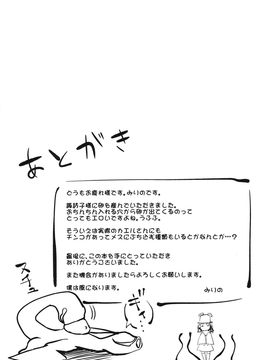 あとがき
どうもお疲れ様です。みりのです。
諏訪子様に卵を産んでいただきました。
おちんちん入れる穴から卵が出てくるのって
とってもエロいですよね。うふふ。
そういえば実際のカエルさんにも
チンコがあってメスにぶち込む種類もいるとかなんとか…?
最後に、この本を手にとっていただき
ありがとうございました。
また機会がありましたらよろしくお願いします。
僕は豚になります。
みりの
スチュ